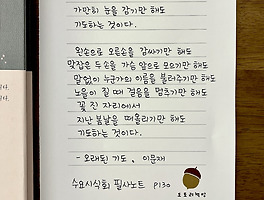 가만히 눈을 감기만 해도
기도하는 것이다.
왼손으로 오른손을 감싸기만 해도
맞잡은 두 손을 가슴 앞으로 모으기만 해도
말없이 누군가의 이름을 불러주기만 해도
노을이 질 때 걸음을 멈추기만 해도
꽃 진 자리에서
지난 봄날을 떠올리기만 해도
기도하는 것이다.
- 오래된 기도, 이문재
수요시식회 필사노트 P130
도토리책방